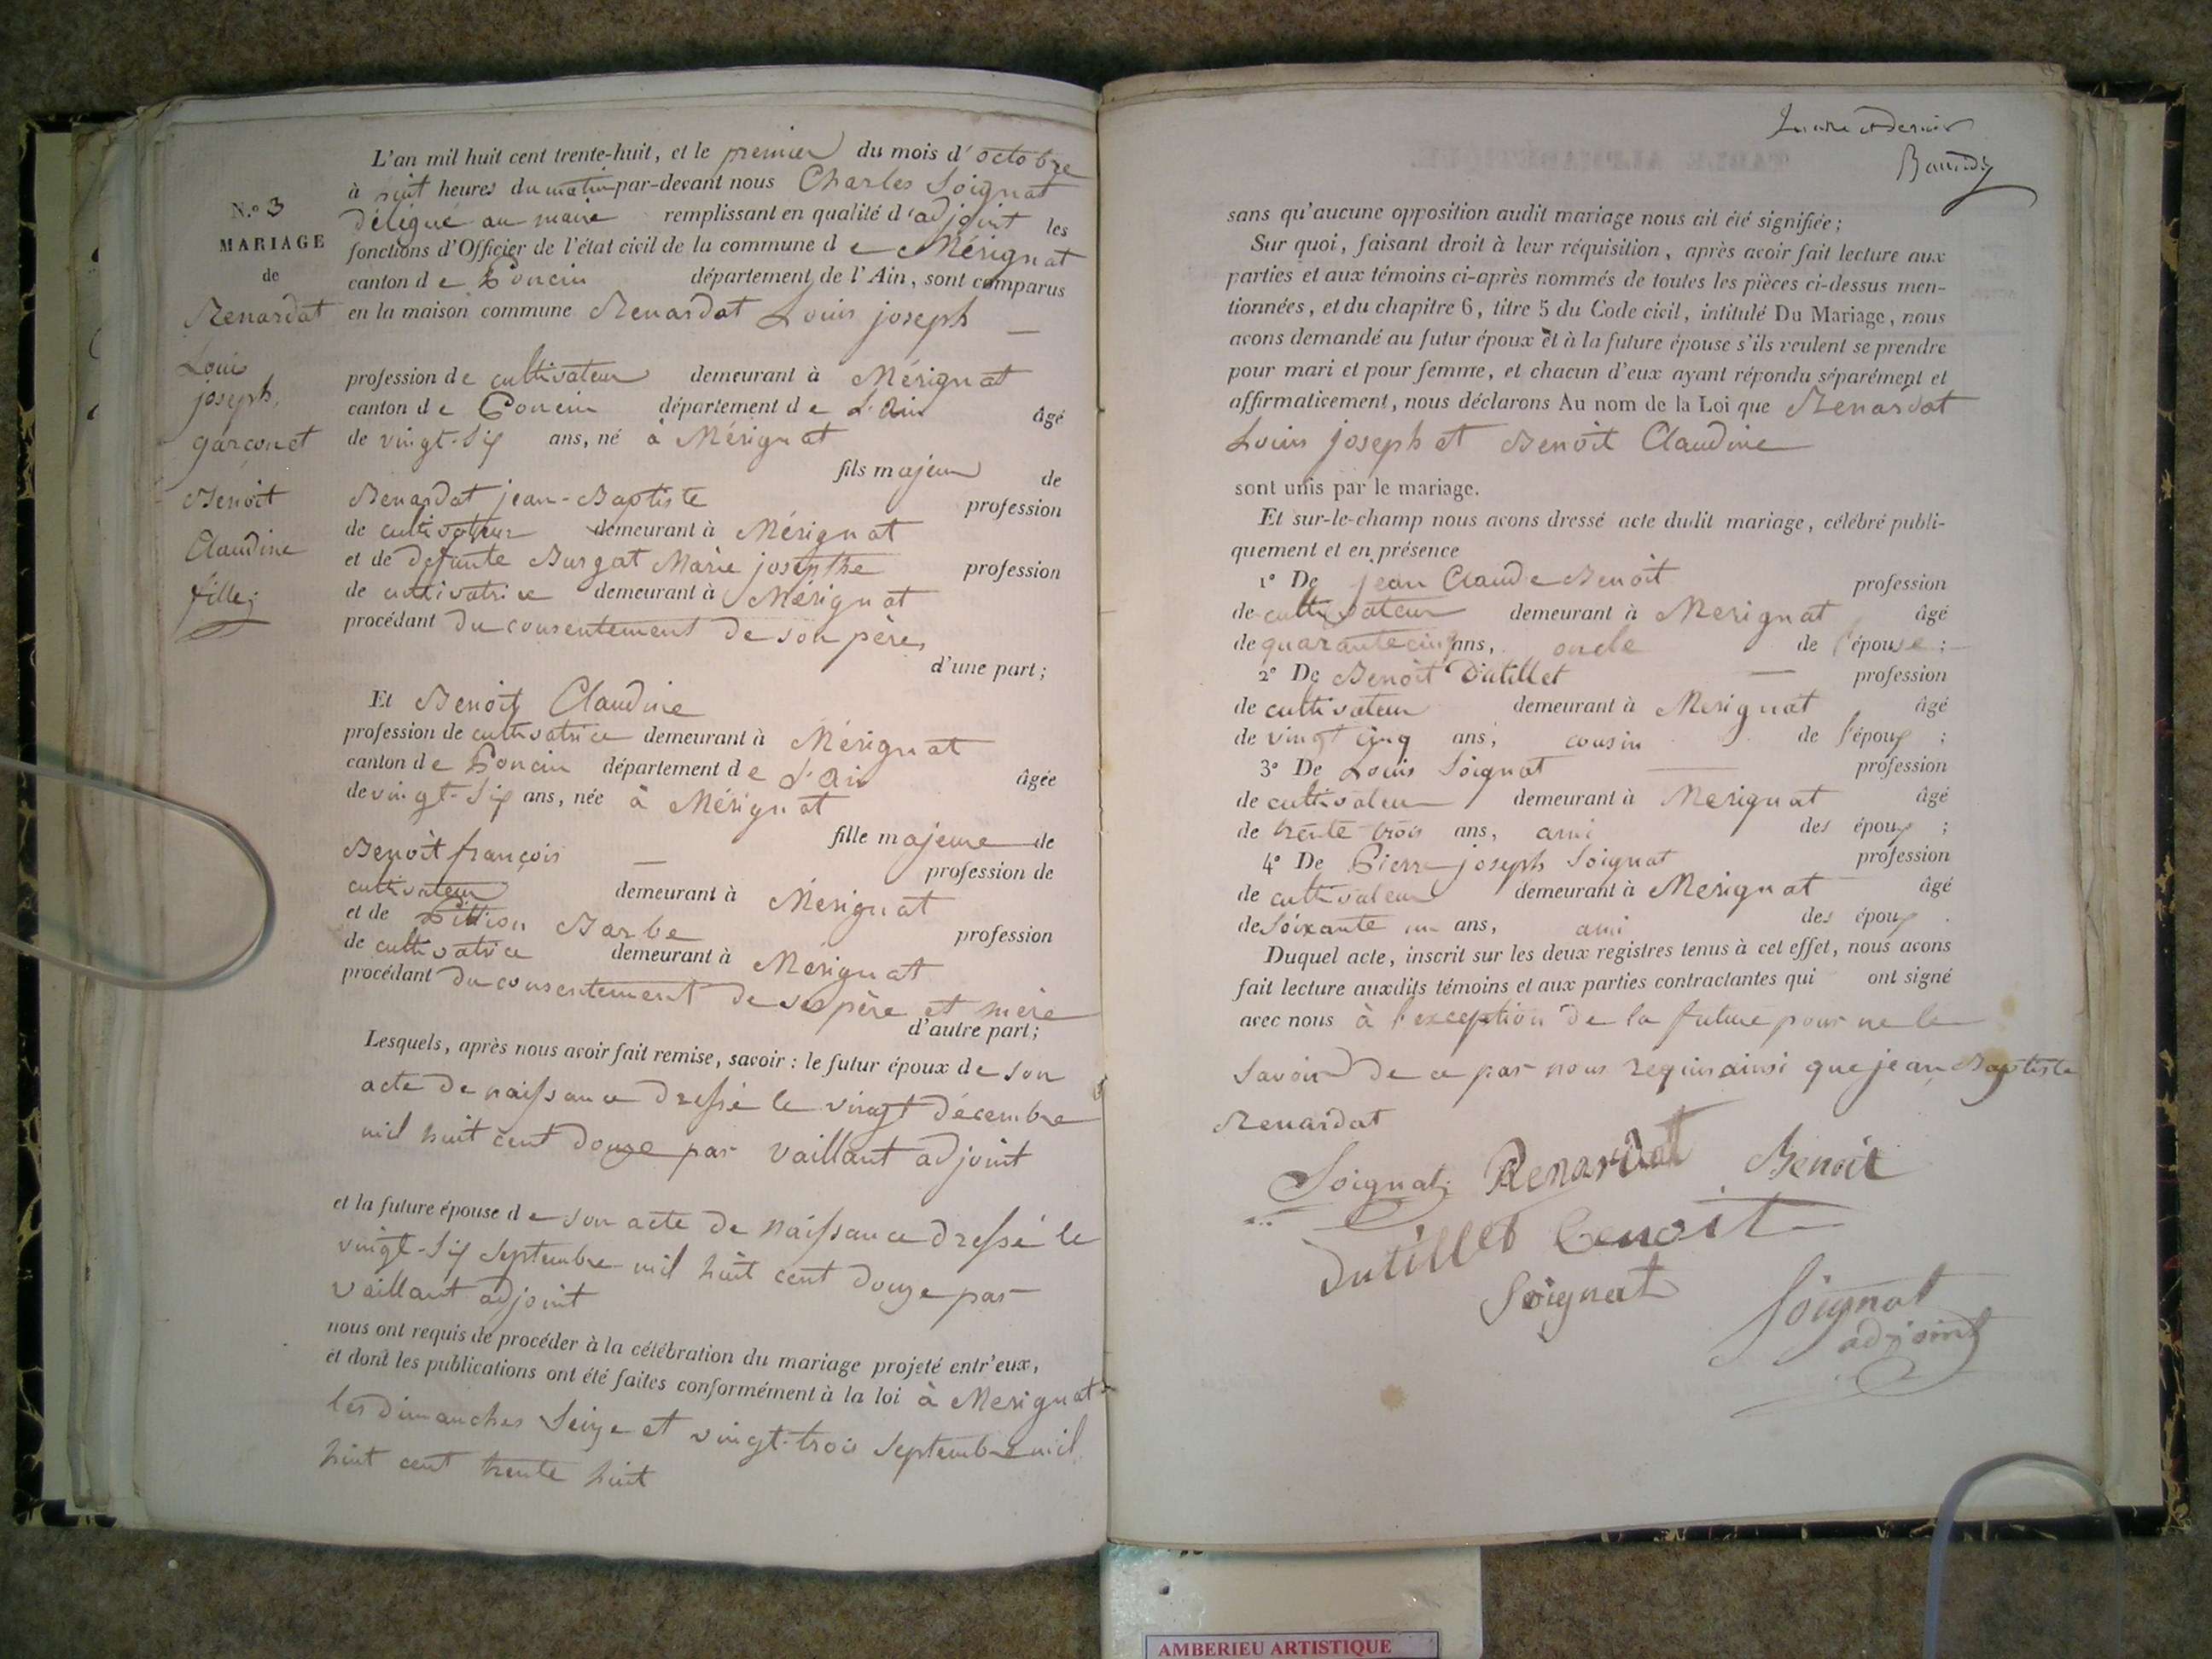 L'an mil huit cent trente-huit, et le premier du mois d'octobre
à huit heures du matin par-devant nous Charles Soignat
délégué au maire remplissant en qualité d'adjoint les
fonctions d'Officier de l'état civil de la commune de Mérignat
canton de Poncin département de l'Ain, sont comparus
en la maison commune Renardat Louis joseph
profession de cultivateur demeurant à Mérignat
canton de Poncin département de L'Ain âgé
de vingt-six ans, né à Mérignat
fils majeur de
Renardat jean-Baptiste profession
de cultivateur demeurant à Mérignat
et de defunte Burgat Marie josepthe profession
de cultivatrice demeurant à Mérignat
procédant du consentement de son père,
d'une part;
Et Benoit Claudine
profession de cultivatrice demeurant à Mérignat
canton de Poncin département de L'Ain âgée
de vingt-six ans, née à Mérignat
fille majeure de
Benoit françois profession de
cultivateur demeurant à Mérignat
et de Pittion Barbe profession
de cultivatrice demeurant à Mérignat
procédant du consentement de ses père et mère
d'autre part;
Lesquels, après nous avoir fait remise, savoir : le futur époux de son
acte de naissance dressé le vingt décembre
mil huit cent douze par vaillant adjoint
et la future épouse de son acte de naissance dressé le
vingt-six septembre mil huit cent douze par
vaillant adjoint
nous ont requis de procéder à la célébration du mariage projeté entr'eux,
et dont les publications ont été faites conformément à la loi à Merignat
les dimanches Seize et vingt-trois septembre mil
huit cent trente huit
N.º 3
MARIAGE
de
Renardat
Louis
joseph,
garçon et
Benoit
Claudine
fille;
sans qu'aucune opposition audit mariage nous ait été signifiée;
Sur quoi, faisant droit à leur réquisition, après avoir fait lecture aux
parties et aux témoins ci-après nommés de toutes les pièces ci-dessus men-
tionnées, et du chapitre 6, titre 5 du Code civil, intitulé Du Mariage, nous
avons demandé au futur époux et à la future épouse s'ils veulent se prendre
pour mari et pour femme, et chacun d'eux ayant répondu séparément et
affirmativement, nous déclarons Au nom de la Loi que Renardat
Louis joseph et Benoit Claudine
sont unis par le mariage.
Et sur-le-champ nous avons dressé acte dudit mariage, célébré publi-
quement et en présence
1º De jean Claude Benoit profession
de cultivateur demeurant à Merignat âgé
de quarante cinq ans, oncle de l'épouse;
2º De Benoit Dutillet profession
de cultivateur demeurant à Merignat âgé
de vingt cinq ans, cousin de l'époux;
3º De Louis Soignat profession
de cultivateur demeurant à Merignat âgé
de trente trois ans, ami des époux;
4º De Pierre joseph Soignat profession
de cultivateur demeurant à Merignat âgé
de Soixante un ans, ami des époux.
Duquel acte, inscrit sur les deux registres tenus à cet effet, nous avons
fait lecture auxdits témoins et aux parties contractantes qui ont signé
avec nous à l'exception de la future pour ne le
savoir de ce par nous requis ainsi que jean Baptiste
Renardat
Soignat Renardat Benoit
Dutillet benoit
Soignat
Soignat
adjoint
AMBERIEU ARTISTIQUE